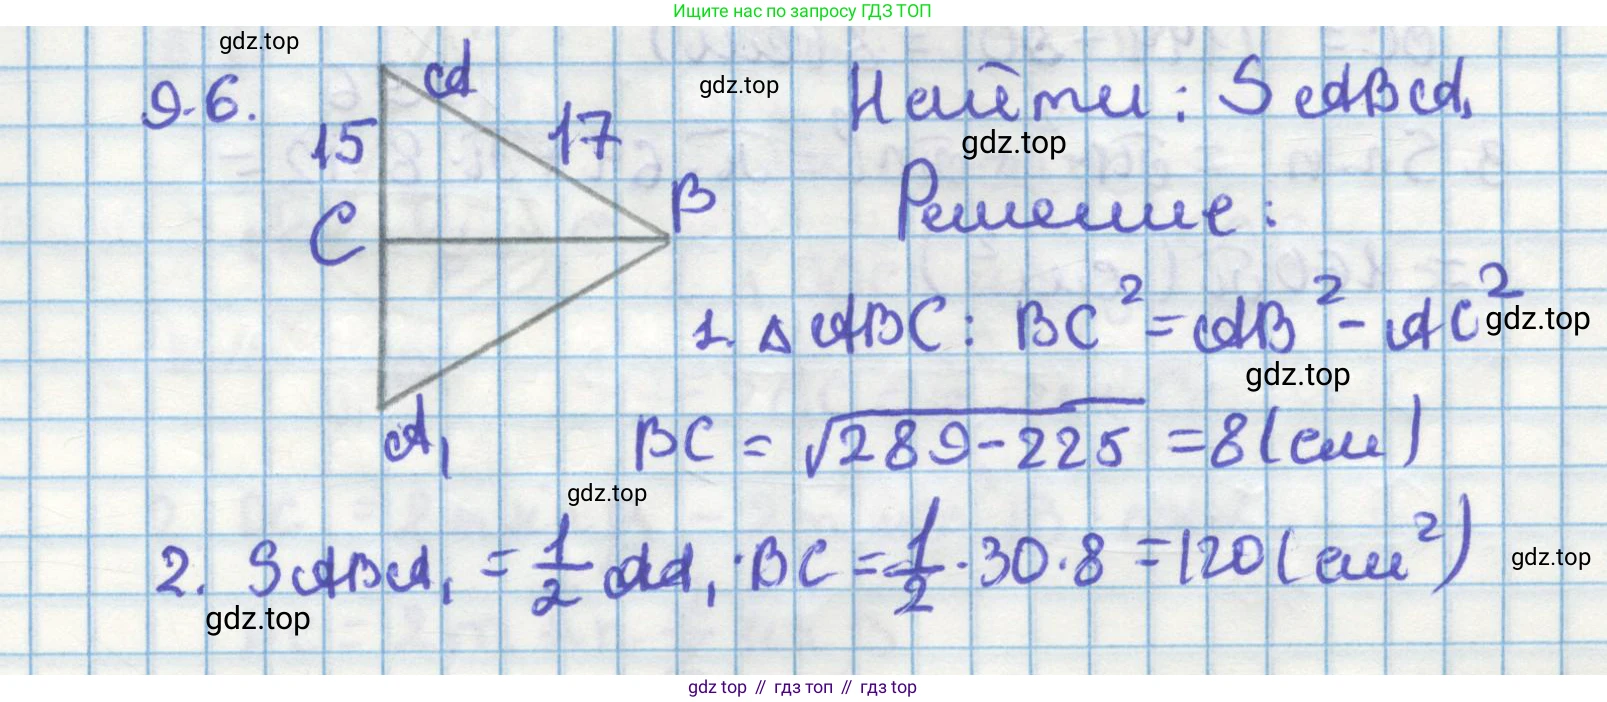 Ищите нас по запросу ГДЗ ТОП
gdz.top
9.6.
A
15
17
C
B
A₁
gdz.top
Найти: S ABA₁
gdz.top
Решение:
1. △ ABC: BC² = AB² - AC²
gdz.top
gdz.top
BC = √289-225 = 8 (см)
gdz.top
2. SABA₁ = 1/2 AA₁ · BC = 1/2 · 30 · 8 = 120 (см²)
gdz.top
gdz.top
gdz top // гдз топ // гдз top